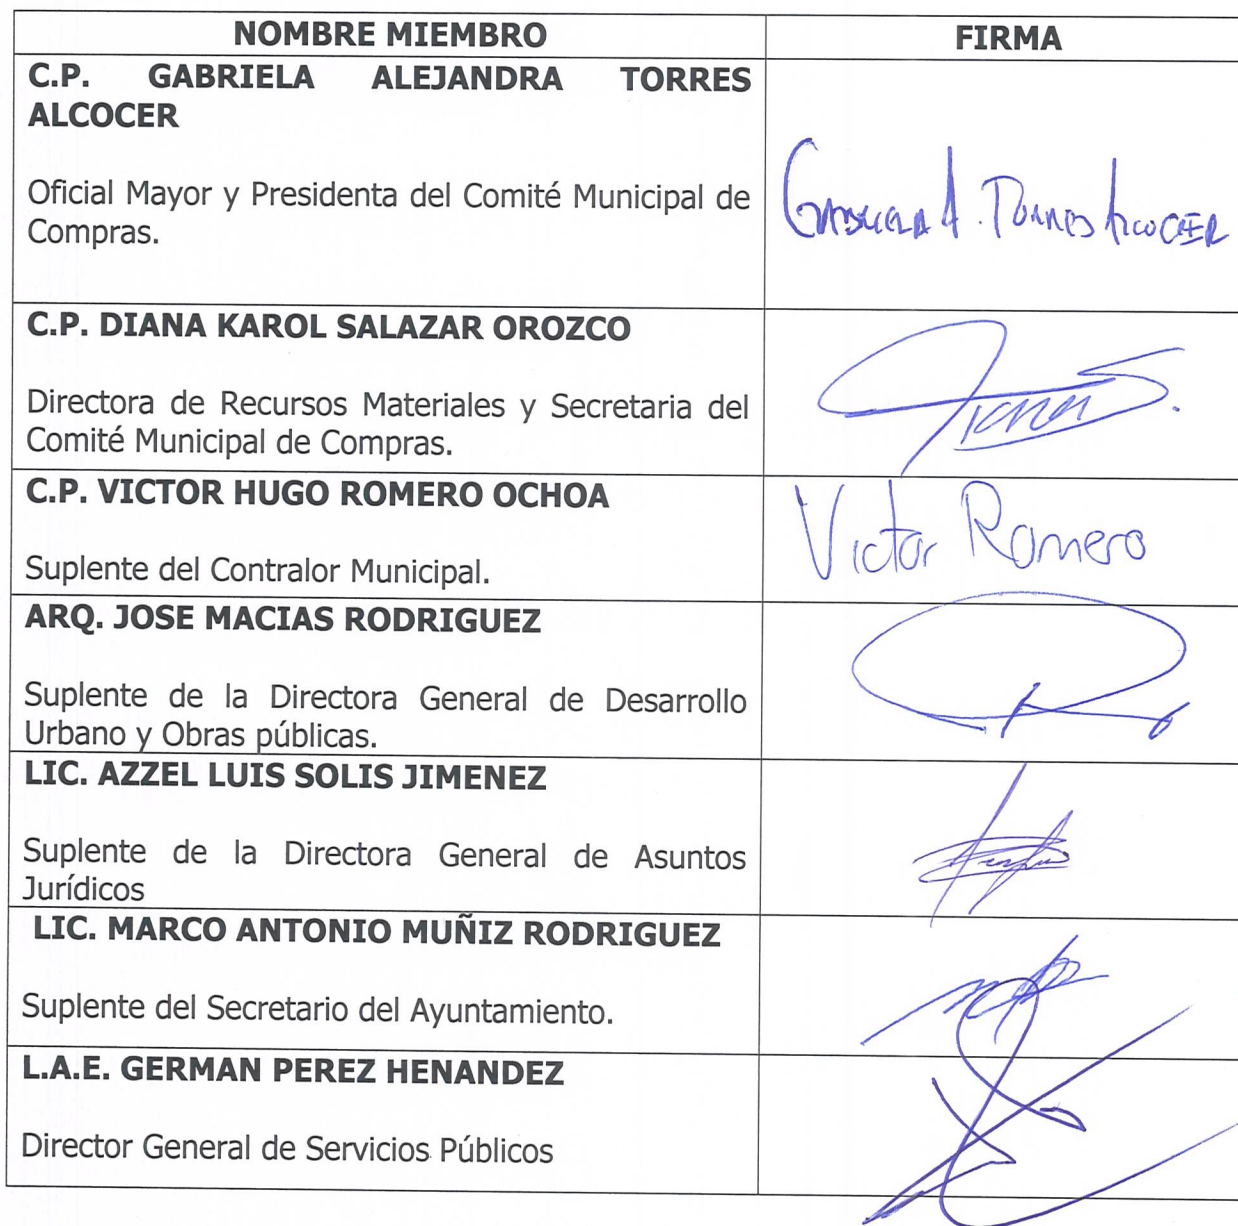 NOMBRE MIEMBRO FIRMA
C.P. GABRIELA ALEJANDRA TORRES
ALCOCER
Oficial Mayor y Presidenta del Comité Municipal de
Compras.
Gabriela A. Torres Alcocer
C.P. DIANA KAROL SALAZAR OROZCO
Directora de Recursos Materiales y Secretaria del
Comité Municipal de Compras.
Diana S.
C.P. VICTOR HUGO ROMERO OCHOA
Victor Romero
Suplente del Contralor Municipal.
ARQ. JOSE MACIAS RODRIGUEZ
Suplente de la Directora General de Desarrollo
Urbano y Obras públicas.
LIC. AZZEL LUIS SOLIS JIMENEZ
Suplente de la Directora General de Asuntos
Jurídicos
LIC. MARCO ANTONIO MUÑIZ RODRIGUEZ
Suplente del Secretario del Ayuntamiento.
L.A.E. GERMAN PEREZ HENANDEZ
Director General de Servicios Públicos